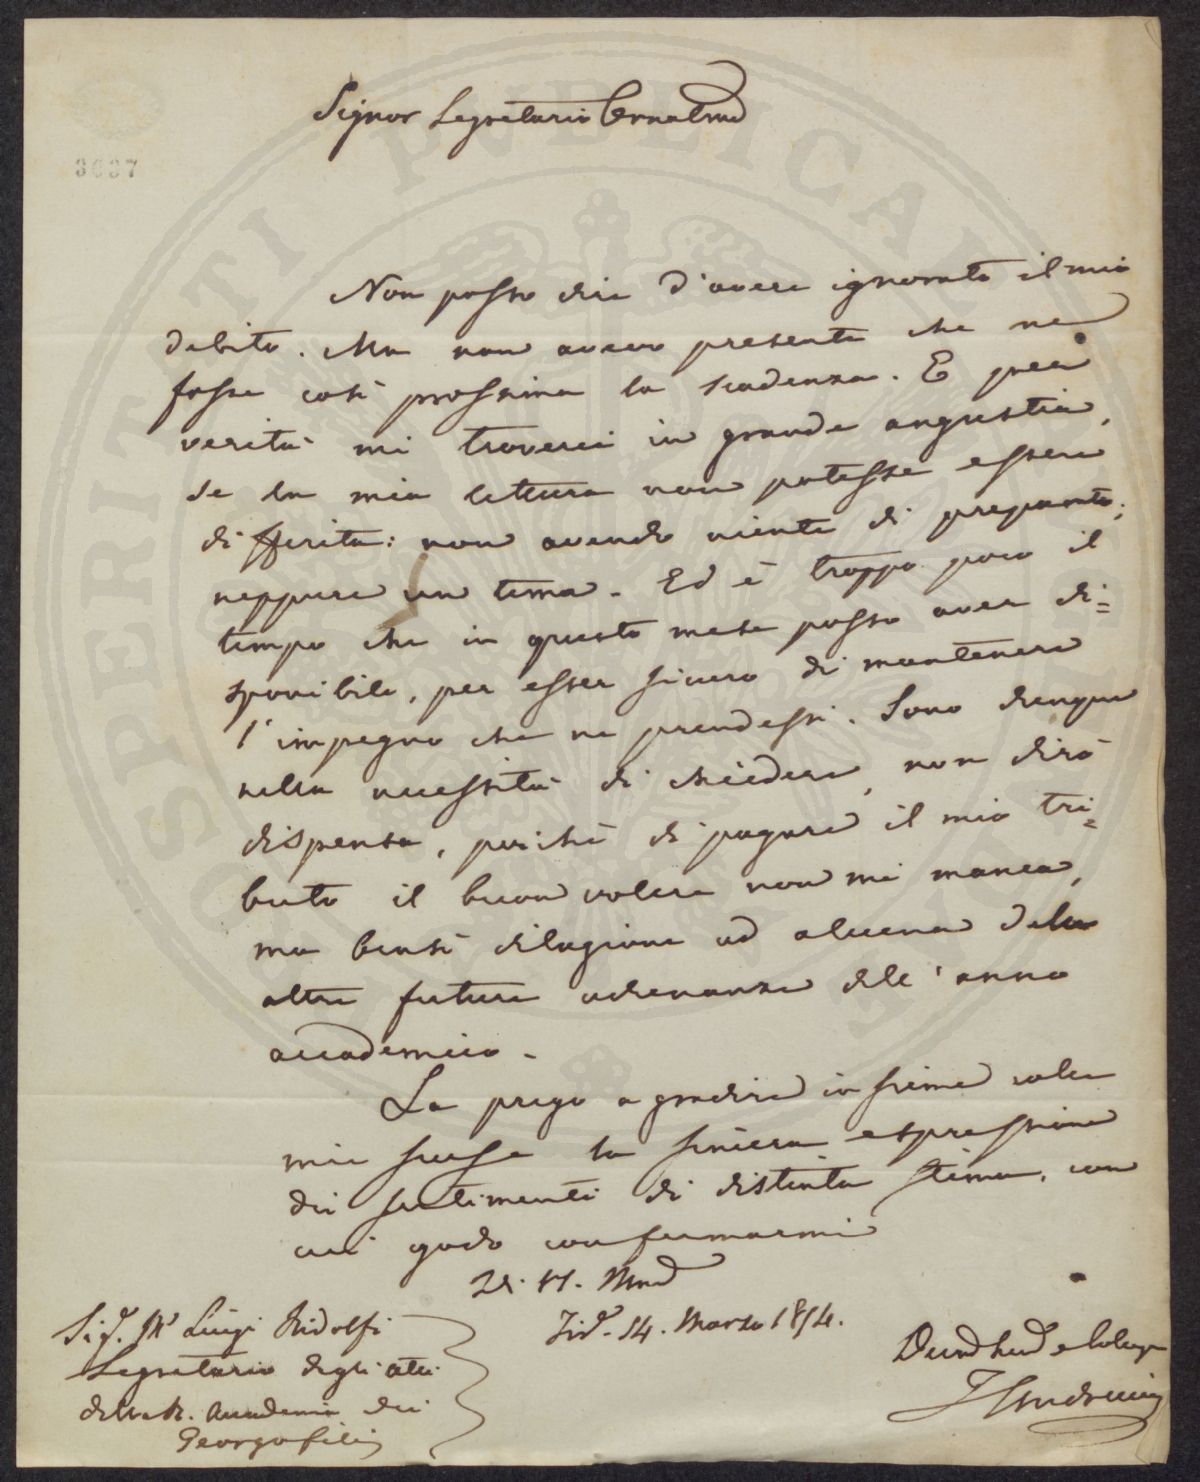 3637
Signor Segretario Ornatmo
Non posso dire d'avere ignorato il mio
debito. Ma non avevo presente che ne
fosse così prossima la scadenza. E per
verità mi troverei in grande angustia,
se la mia lettura non potesse essere
differita: non avendo niente di preparato;
neppure un tema. Ed è troppo poco il
tempo che in questo mese posso aver di=
sponibile, per esser sicuro di mantenere
l'impegno che ne prendessi. Sono dunque
nella necessità di chiedere, non dirò
dispensa, poichè di pagare il mio tri=
buto il buon volere non mi manca,
ma bensì dilazione ad alcuna delle
altre future adunanze dell'anno
accademico.
La prego a gradire insieme colle
mie scuse la sincera espressione
dei sentimenti di distinta stima, con
cui godo confermarmi
Di V. S. Illma
14. Marzo 1854.
Sigr. Mse Luigi Ridolfi
Segretario degli atti
della R. Accademia dei
Georgofili
Devmo e Collega
SPERITATI PUBLICAE